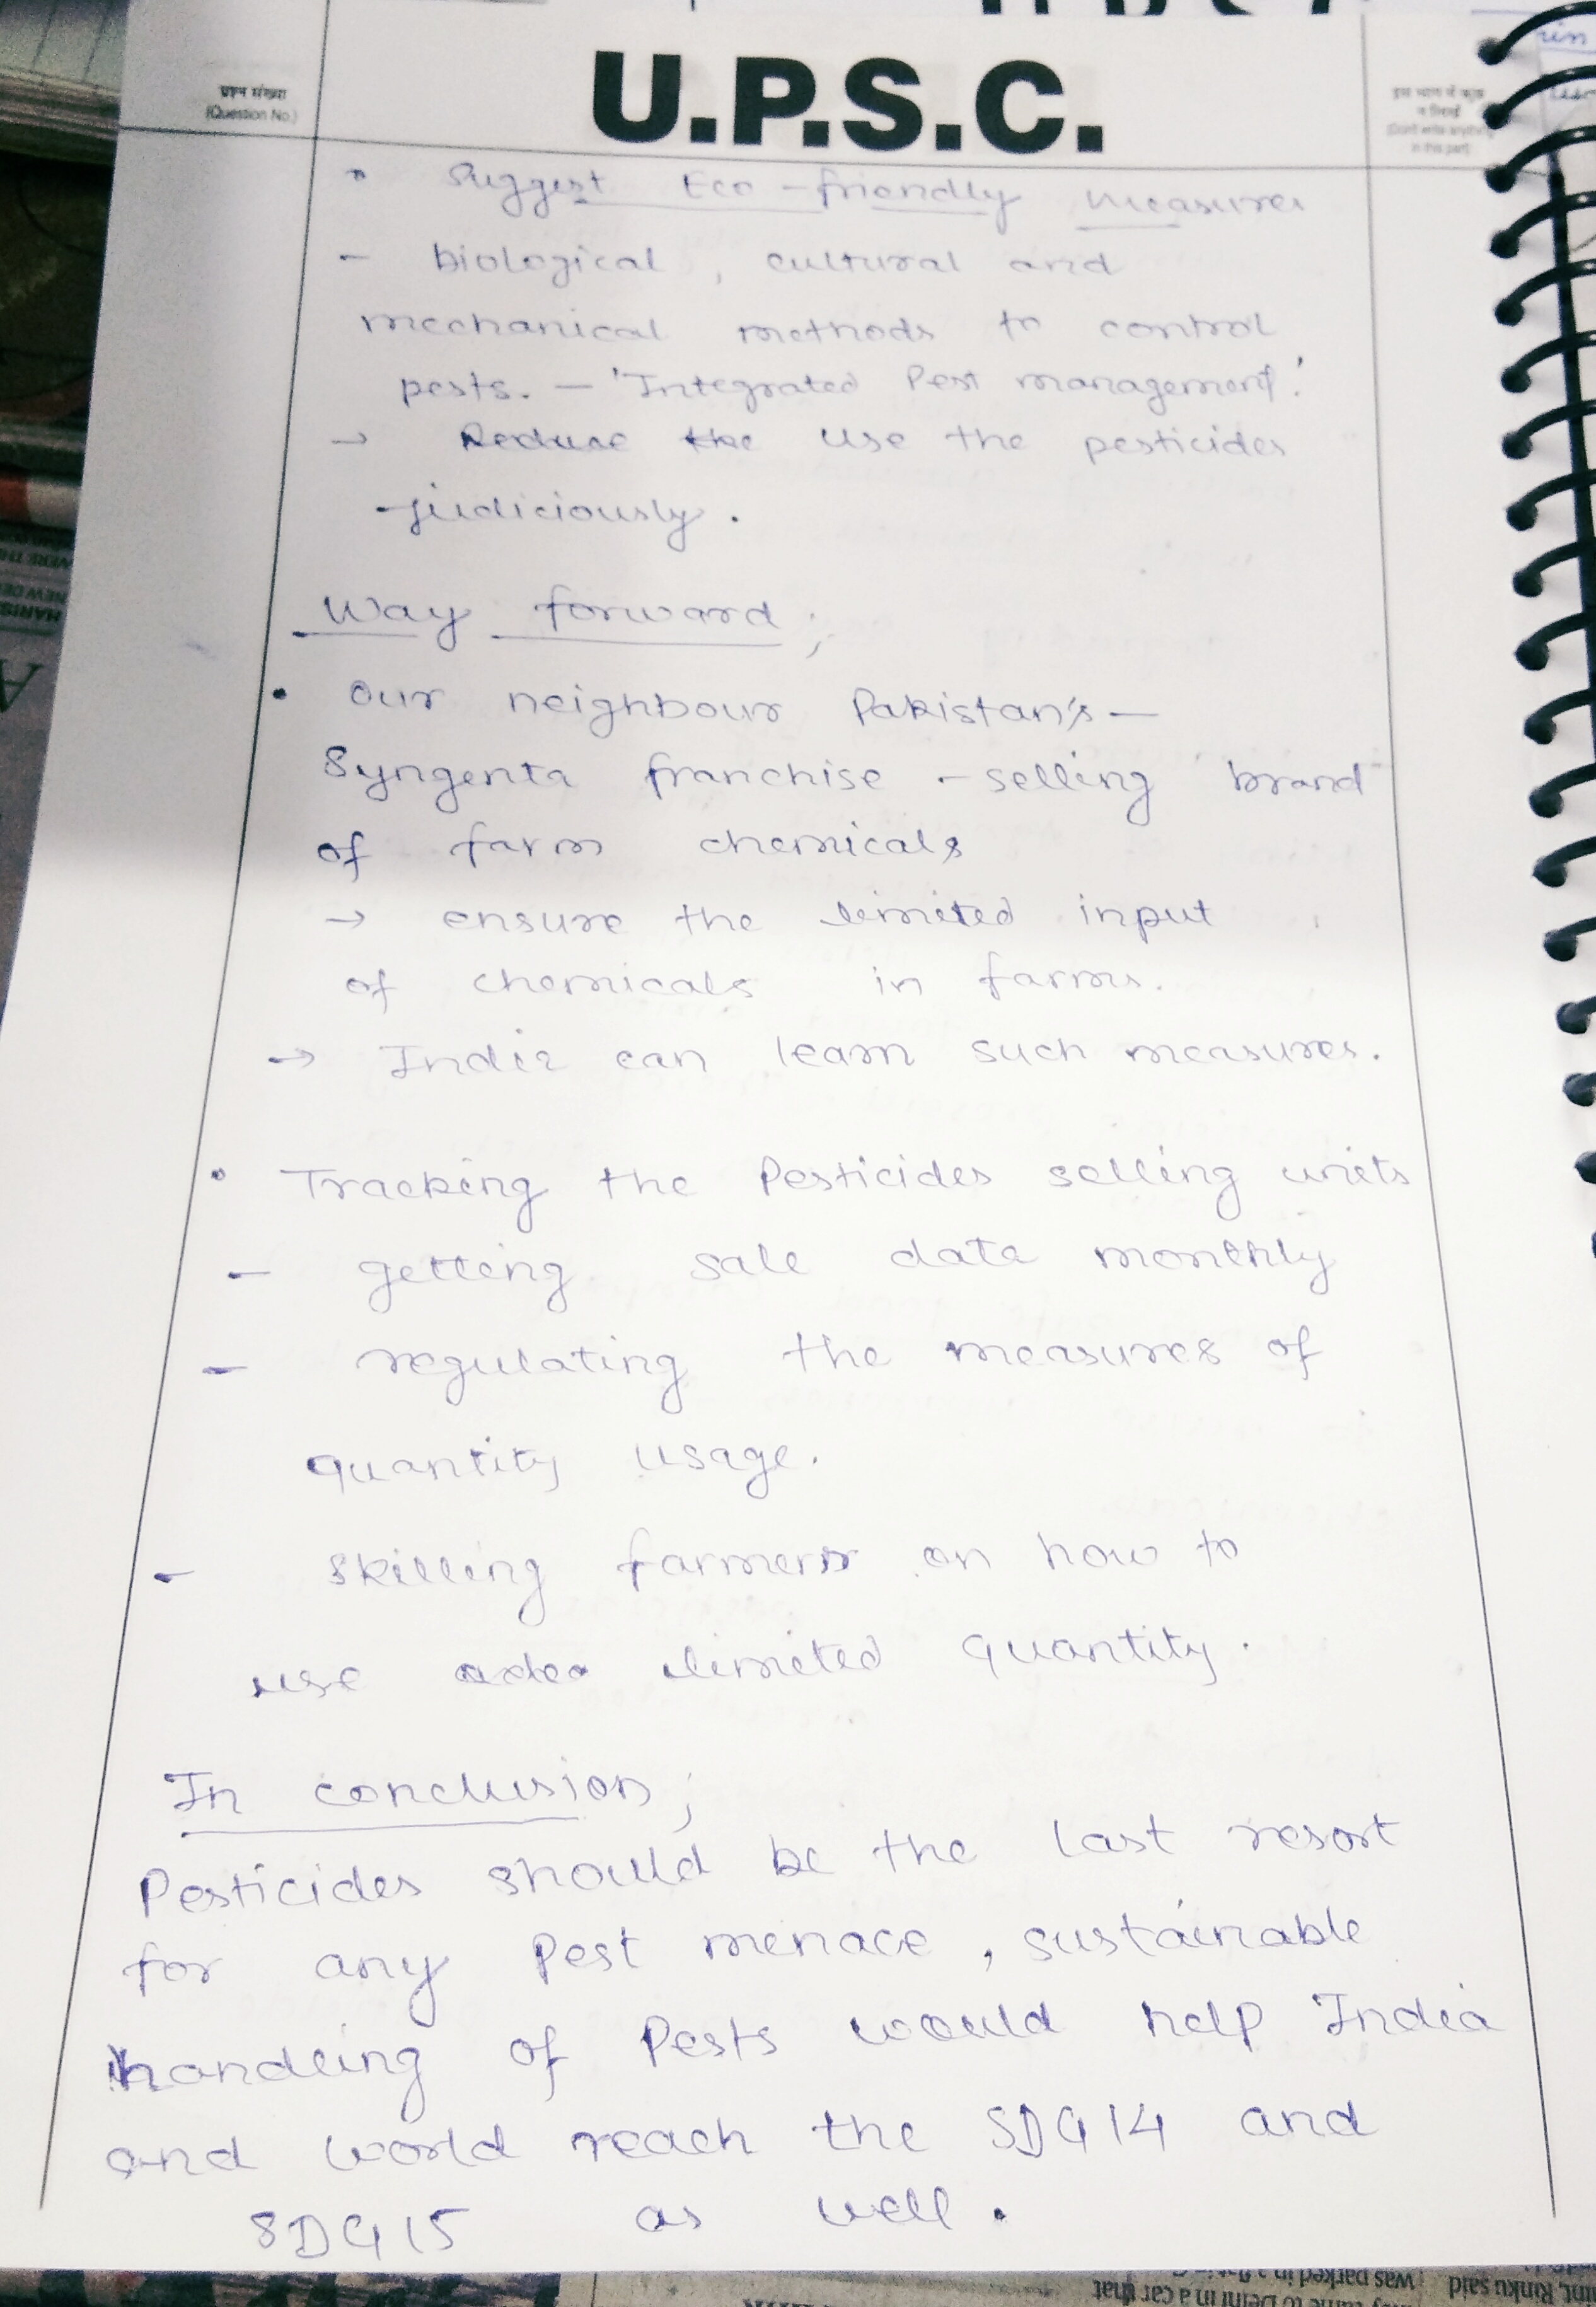 U.P.S.C.
प्रश्न संख्या
(Question No.)
• Suggest Eco-friendly measures
- biological, cultural and
mechanical methods to control
pests. - 'Integrated Pest management'.
→ Reduce the use the pesticides
judiciously.
Way forward;
• Our neighbour Pakistan's -
Syngenta franchise - selling brand
of farm chemicals
→ ensure the limited input
of chemicals in farms.
→ India can learn such measures.
• Tracking the Pesticides selling units
- getting sale data monthly
- regulating the measures of
quantity usage.
- skilling farmers on how to
use limited quantity.
In conclusion;
Pesticides should be the last resort
for any Pest menace, sustainable
handling of Pests would help India
and world reach the SDG 14 and
SDG 15 as well.